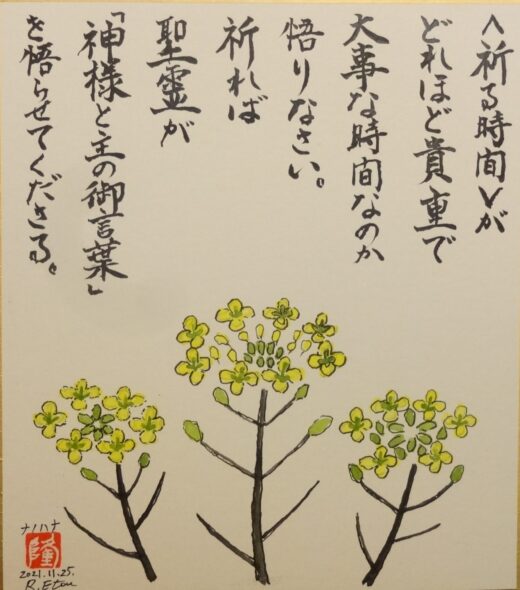 <祈る時間>が
どれほど貴重で
大事な時間なのか
悟りなさい。
祈れば
聖霊が
「神様と主の御言葉」
を悟らせてくださる。
ナノハナ
隆
2021.11.25.
R.Etou